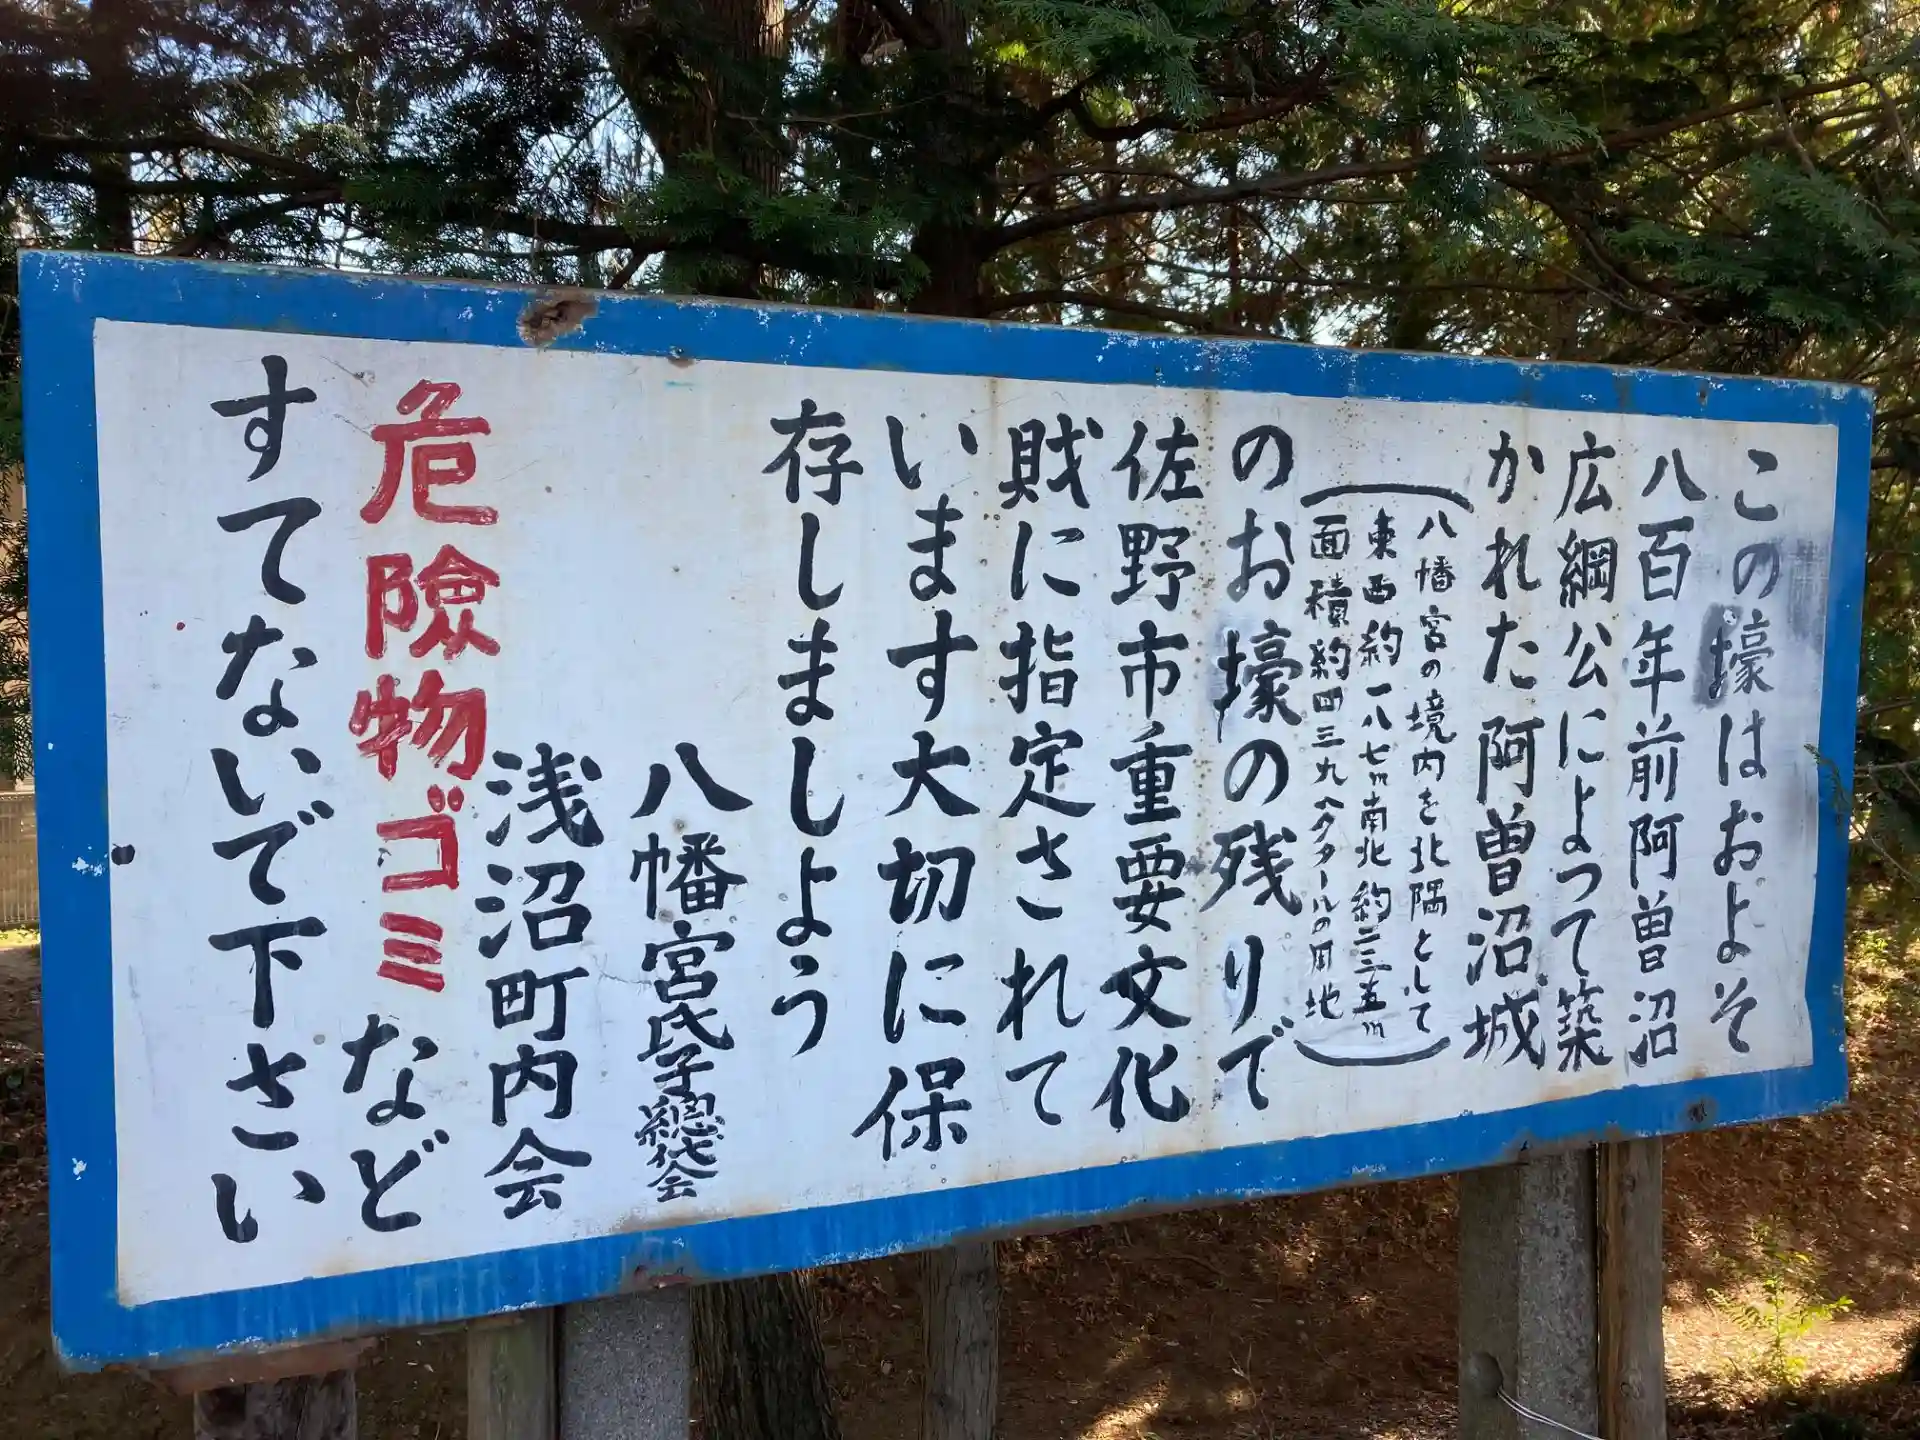 この壕はおよそ
八百年前阿曽沼
広綱公によって築
かれた阿曽沼城
(八幡宮の境内を北隅として
東西約一八七m南北約二三五m
面積約四三九ヘクタールの用地)
のお壕の残りで
佐野市重要文化
財に指定されて
います大切に保
存しましよう
八幡宮氏子總代会
浅沼町内会
危険物ゴミなど
すてないで下さい